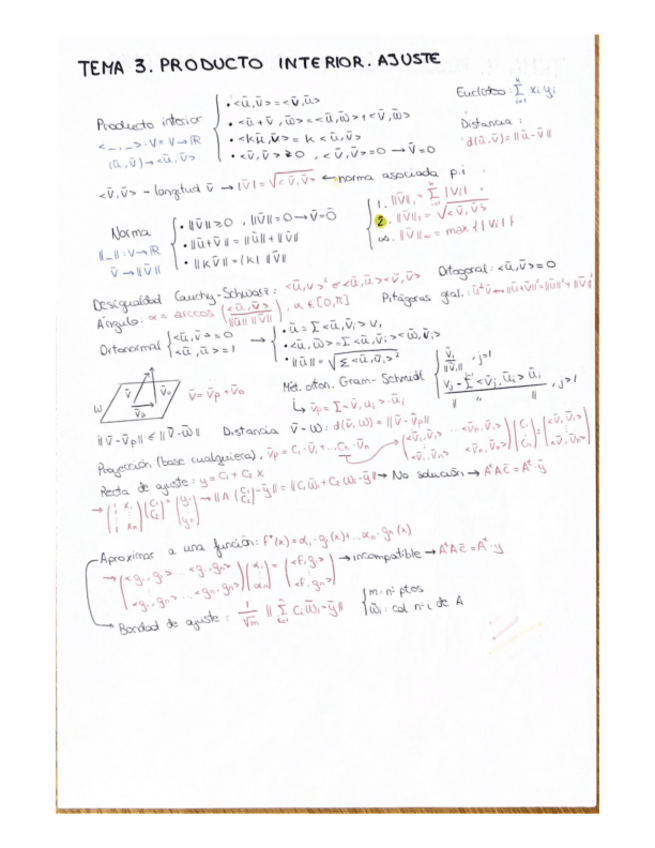 TEMA 3. PRODUCTO INTERIOR. AJUSTE
Producto interior
<_,_>: V×V→ℝ
(ū,v̄)→<ū,v̄>
• <ū,v̄>=<v̄,ū>
• <ū+v̄,w̄>=<ū,w̄>+<v̄,w̄>
• <kū,v̄>= k <ū,v̄>
• <v̄,v̄>≥0 , <v̄,v̄>=0 → v̄=0
Euclídeo: Σ xi yi
Distancia:
d(ū,v̄)=||ū-v̄||
<v̄,v̄> - longitud v̄ → |v̄| = √<v̄,v̄> ← norma asociada p.i
Norma
||_||: V→ℝ
v̄→||v̄||
• ||v̄||≥0 , ||v̄||=0→v̄=0̄
• ||ū+v̄|| = ||ū||+||v̄||
• ||kv̄||=|k| ||v̄||
1. ||v̄||₁ = Σ |vi|
2. ||v̄||₂ = √<v̄,v̄>
∞. ||v̄||∞ = max{|vi|}
Desigualdad Cauchy-Schwarz: <ū,v>² ≤ <ū,ū><v̄,v̄>
Ortogonal: <ū,v̄>=0
Ángulo: α = arccos (<ū,v̄> / ||ū|| ||v̄||), α ∈ [0,π]
Pitágoras gral.: ū⊥v̄ ↔ ||ū+v̄||²=||ū||²+||v̄||²
Ortonormal { <ū,v̄>=0
<ū,ū>=1
→ • ū = Σ<ū,v̄i> vi
• <ū,w̄>=Σ<ū,v̄i><w̄,v̄i>
• ||ū|| = √Σ<ū,v̄i>²
w v̄ v̄o v̄p
v̄ = v̄p + v̄o
Mét. oton. Gram-Schmidt
↳ v̄p = Σ<v̄,ui>·ūi
v̄1 / ||v̄1|| , j=1
vj - Σ<v̄j,ūi>ūi / || " || , j>1
||v̄-v̄p|| ≤ ||v̄-w̄||
Distancia v̄-w: d(v̄,w) = ||v̄-v̄p||
Proyección (base cualquiera), v̄p = c1·v̄1+...cn·v̄n
→ (<v̄1,v̄1> ... <v̄n,v̄1> <v̄1,v̄n> <v̄n,v̄n>) (c1 cn) = (<v̄,v̄1> <v̄,v̄n>)
Recta de ajuste: y = c1 + c2 x
→ (1 x1 1 xn) (c1 c2) = (y1 yn) → ||A (c1 c2) - ȳ|| = ||c1w̄1+c2w̄2-ȳ|| → No solución → AᵗAc̄ = Aᵗ·ȳ
Aproximar a una función: f*(x) = α1·g1(x)+...αn·gn(x)
→ (<g1,g1> ... <g1,gn> <g1,gn> ... <gn,gn>) (α1 αn) = (<f,g1> <f,gn>) → incompatible → AᵗAc̄ = Aᵗ·y
→ Bondad de ajuste: 1/√m || Σ ciw̄i-ȳ || { m: nº ptos
w̄i: col nº i de A